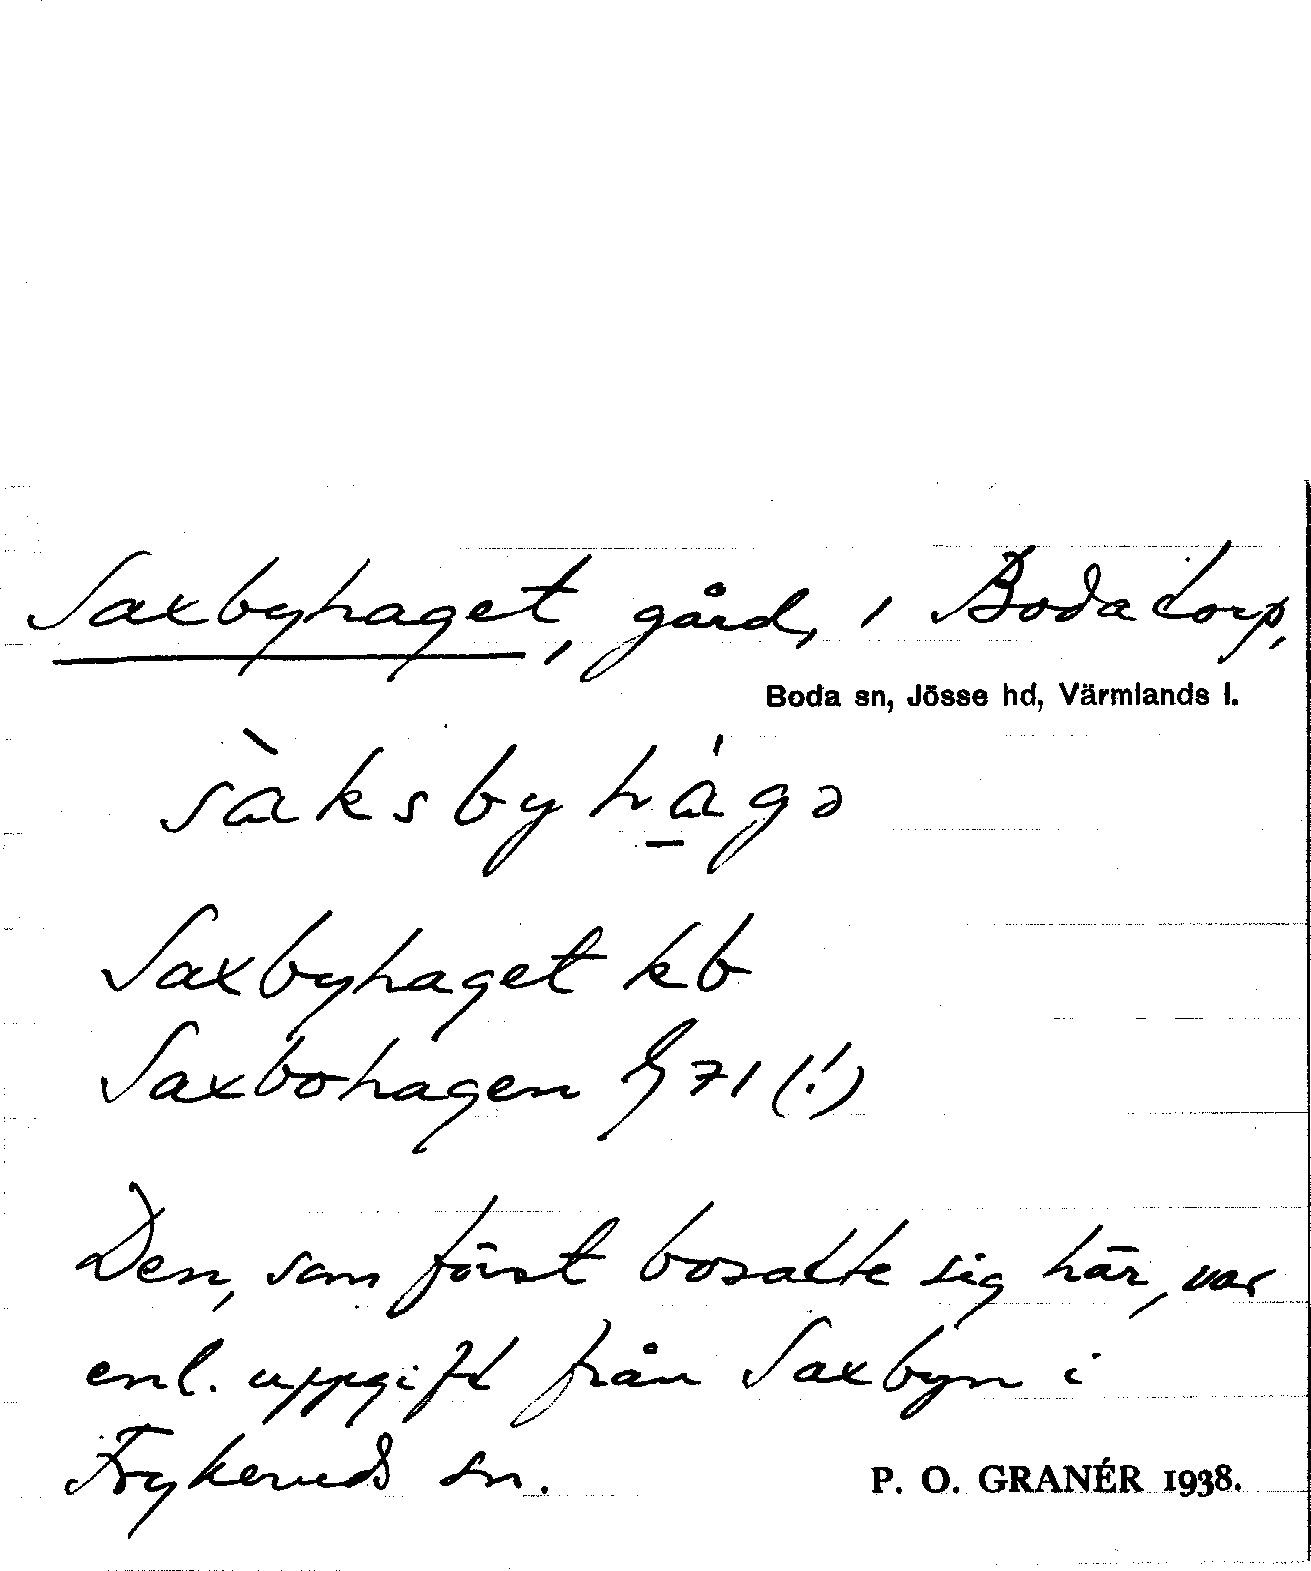 Saxbyhaget, gård, i Bodatorp,
Boda sn, Jösse hd, Värmlands l.
sàksbyhágə
Saxbyhaget kb
Saxbohagen G 71 (!)
Den, som först bosatte sig här, var
enl. uppgift från Saxbyn i
Frykeruds sn.
P. O. GRANÉR 1938.